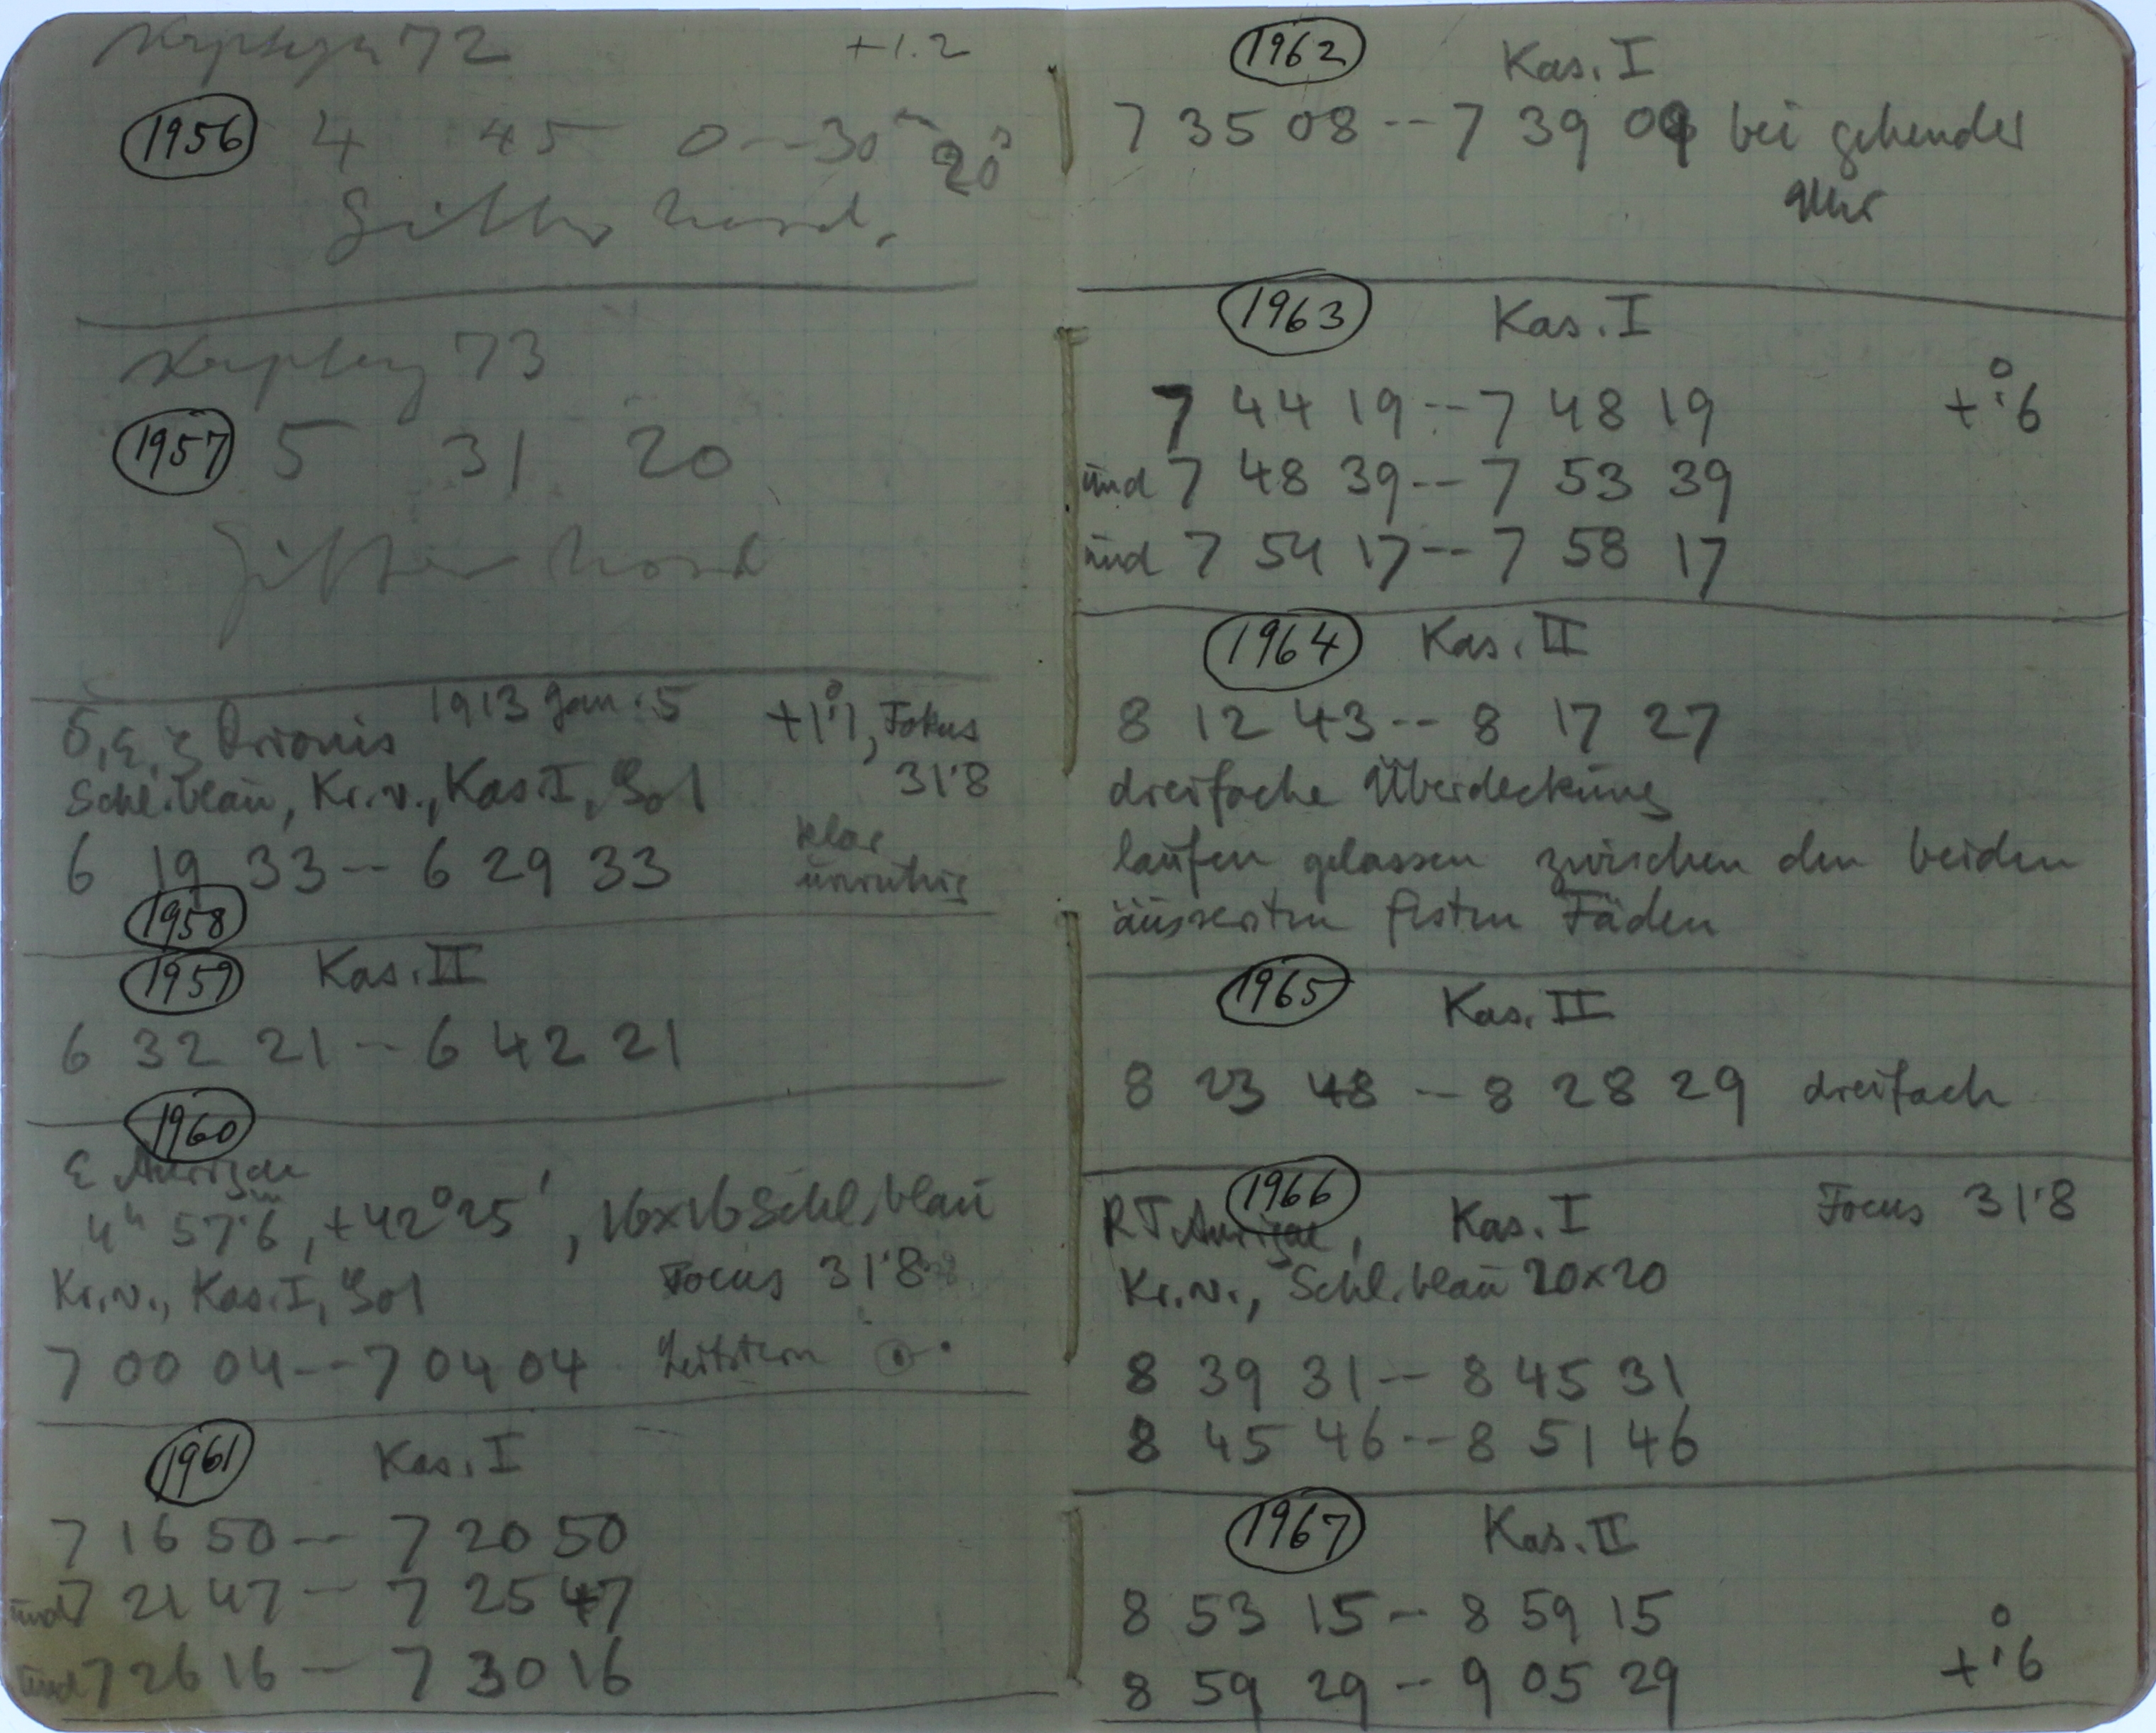 72 +1.2
1956 4 45 0--30m 20s
Gitter
73
1957 5 31 20
Gitter
δ, ε, ζ Orionis 1913 Jan. 5 +1°.1, Fokus
Schl. blau, Kr. v., Kas. I, 31.8
6 19 33 -- 6 29 33 klar
unruhig
1958
1959 Kas. II
6 32 21 -- 6 42 21
1960
ε Aurigae
4h 57m.6, +42° 25', 16×16 Schl. blau
Kr. v., Kas. I, Focus 31.8
7 00 04 -- 7 04 04 Leitstern
1961 Kas. I
7 16 50 -- 7 20 50
und 7 21 47 -- 7 25 47
und 7 26 16 -- 7 30 16
1962 Kas. I
7 35 08 -- 7 39 09 bei gehender
Uhr
1963 Kas. I
7 44 19 -- 7 48 19 +°.6
und 7 48 39 -- 7 53 39
und 7 54 17 -- 7 58 17
1964 Kas. II
8 12 43 -- 8 17 27
dreifache Überdeckung
laufen gelassen zwischen den beiden
äussersten festen Fäden
1965 Kas. II
8 23 48 -- 8 28 29 dreifach
1966
RT Aurigae, Kas. I Focus 31.8
Kr. v., Schl. blau 20×20
8 39 31 -- 8 45 31
8 45 46 -- 8 51 46
1967 Kas. II
8 53 15 -- 8 59 15
8 59 29 -- 9 05 29 +°.6